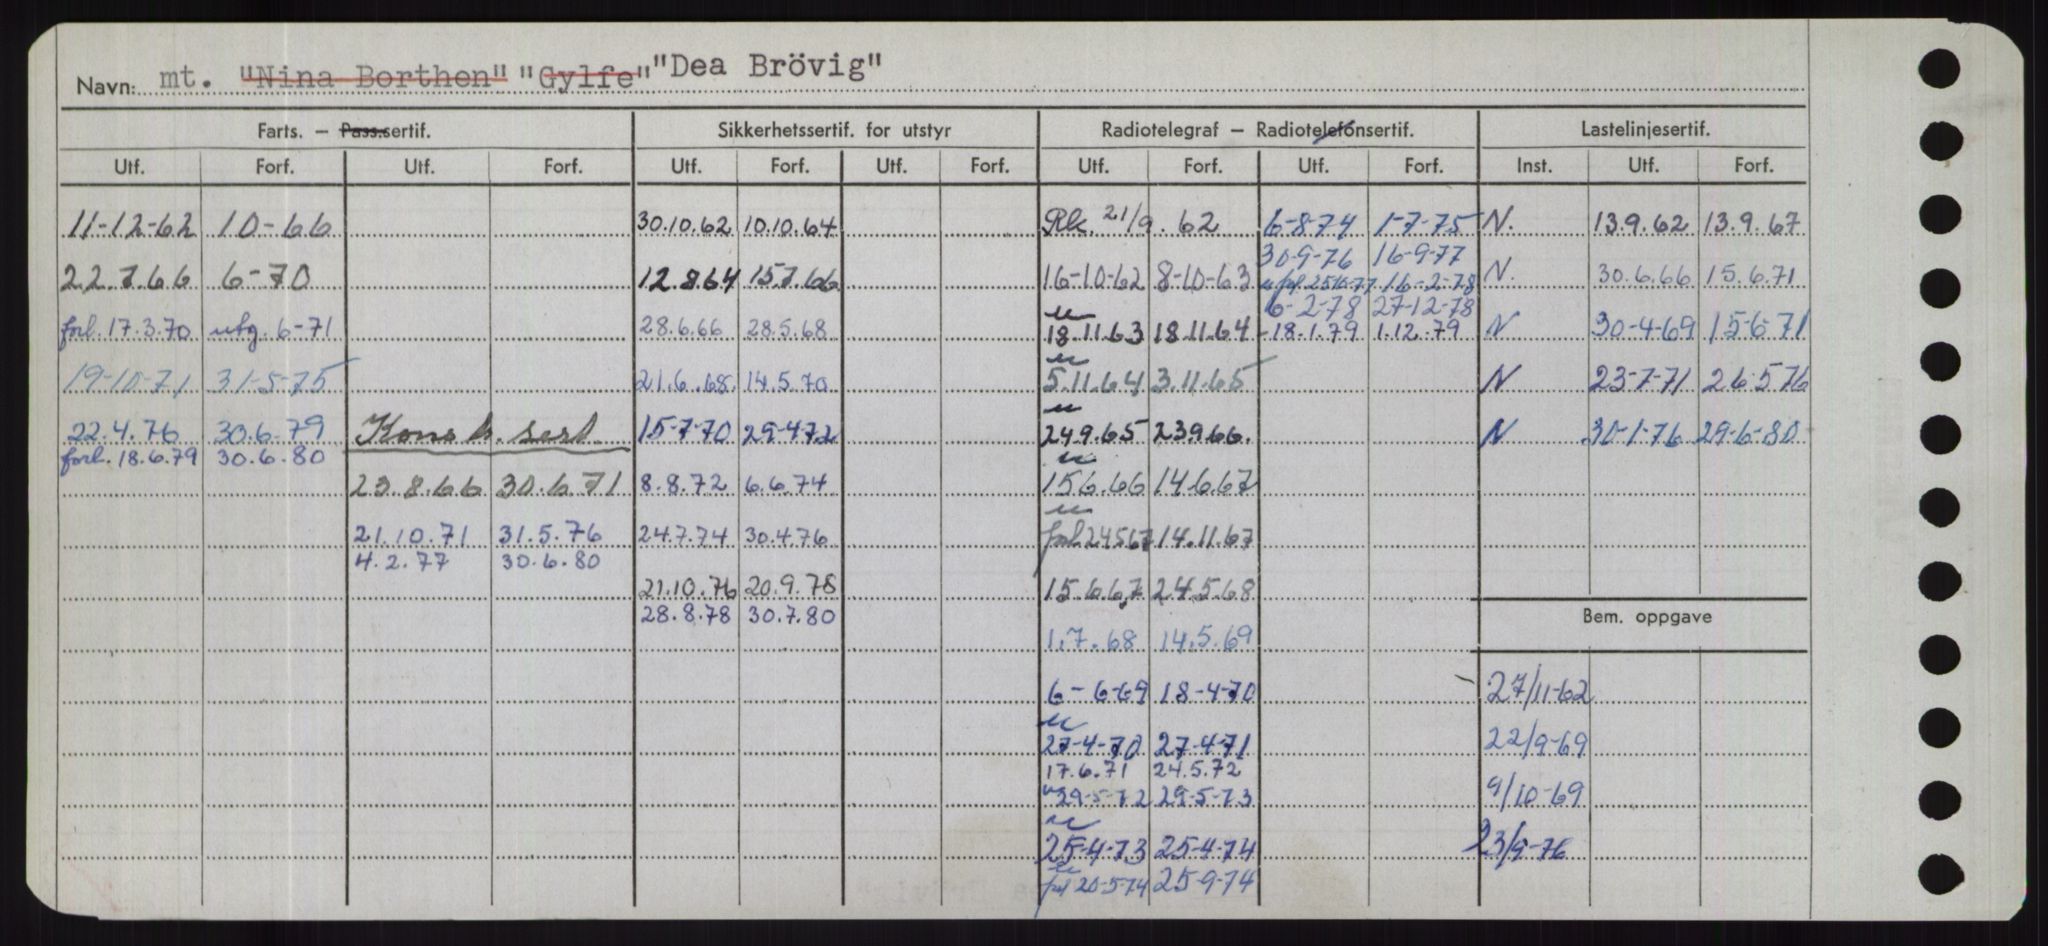 Navn: mt. "Nina Borthen" "Gylfe" "Dea Brövig"
Farts. — Pass.sertif. Sikkerhetssertif. for utstyr Radiotelegraf — Radiotelefonsertif. Lastelinjesertif.
Utf. Forf. Utf. Forf. Utf. Forf. Utf. Forf. Utf. Forf. Utf. Forf. Inst. Utf. Forf.
11-12-62 10-66 30.10.62 10.10.64 Rk. 21/9.62 6-8-74 1-7-75 N. 13.9.62 13.9.67
30-9-76 16-9-77
22.7.66 6-70 12.8.64 15.7.66 16-10-62 8-10-63 16-2-78 N. 30.6.66 15.6.71
6-2-78 27-12-78
forl. 17.3.70 utg. 6-71 28.6.66 28.5.68 18.11.63 18.11.64 18.1.79 1.12.79 N 30-4-69 15-6-71
19-10-71 31-5-75 21.6.68 14.5.70 5.11.64 3.11.65 N 23-7-71 26.5.76
22.4.76 30.6.79 Konstr. sert. 15-7-70 29-4-72 24.9.65 23.9.66. N 30-1-76 29-6-80
forl. 18.6.79 30.6.80
23.8.66 30.6.71 8.8.72 6.6.74 15.6.66 14.6.67
21.10.71 31.5.76 24.7.74 30.4.76 forl. 24.5.67 14.11.67
4.2.77 30.6.80
21.10.76 20.9.78 15.6.67 24.5.68
28.8.78 30.7.80 Bem. oppgave
1.7.68 14.5.69
6-6-69 18-4-70 27/11-62
27-4-70 27-4-71 22/9-69
17.6.71 24.5.72
29-5-72 29-5-73 9/10-69
25-4-73 25-4-74 23/9-76
forl 20-5-74 25-9-74